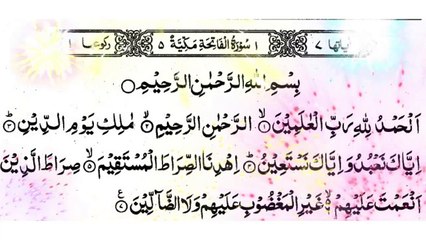 اٰیاتھا ٧ ١ سُوْرَةُ الْفَاتِحَةِ مَكِّيَّةٌ ٥ رکوعھا ١
بِسْمِ اللّٰهِ الرَّحْمٰنِ الرَّحِيْمِ
اَلْحَمْدُ لِلّٰهِ رَبِّ الْعٰلَمِيْنَ الرَّحْمٰنِ الرَّحِيْمِ مٰلِكِ يَوْمِ الدِّيْنِ
اِيَّاكَ نَعْبُدُ وَاِيَّاكَ نَسْتَعِيْنُ اِهْدِنَا الصِّرَاطَ الْمُسْتَقِيْمَ صِرَاطَ الَّذِيْنَ
اَنْعَمْتَ عَلَيْهِمْ غَيْرِ الْمَغْضُوْبِ عَلَيْهِمْ وَلَا الضَّآلِّيْنَ